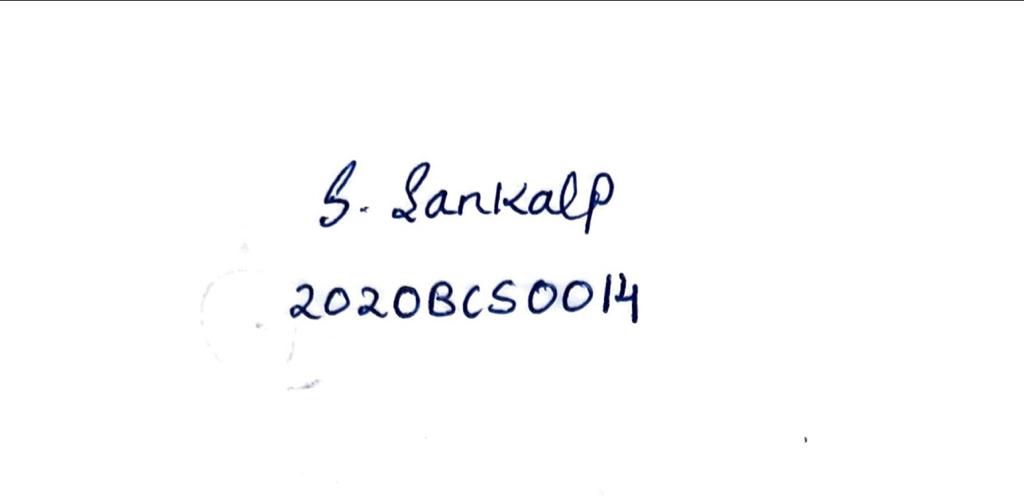 S. Sankalp
2020BCS0014